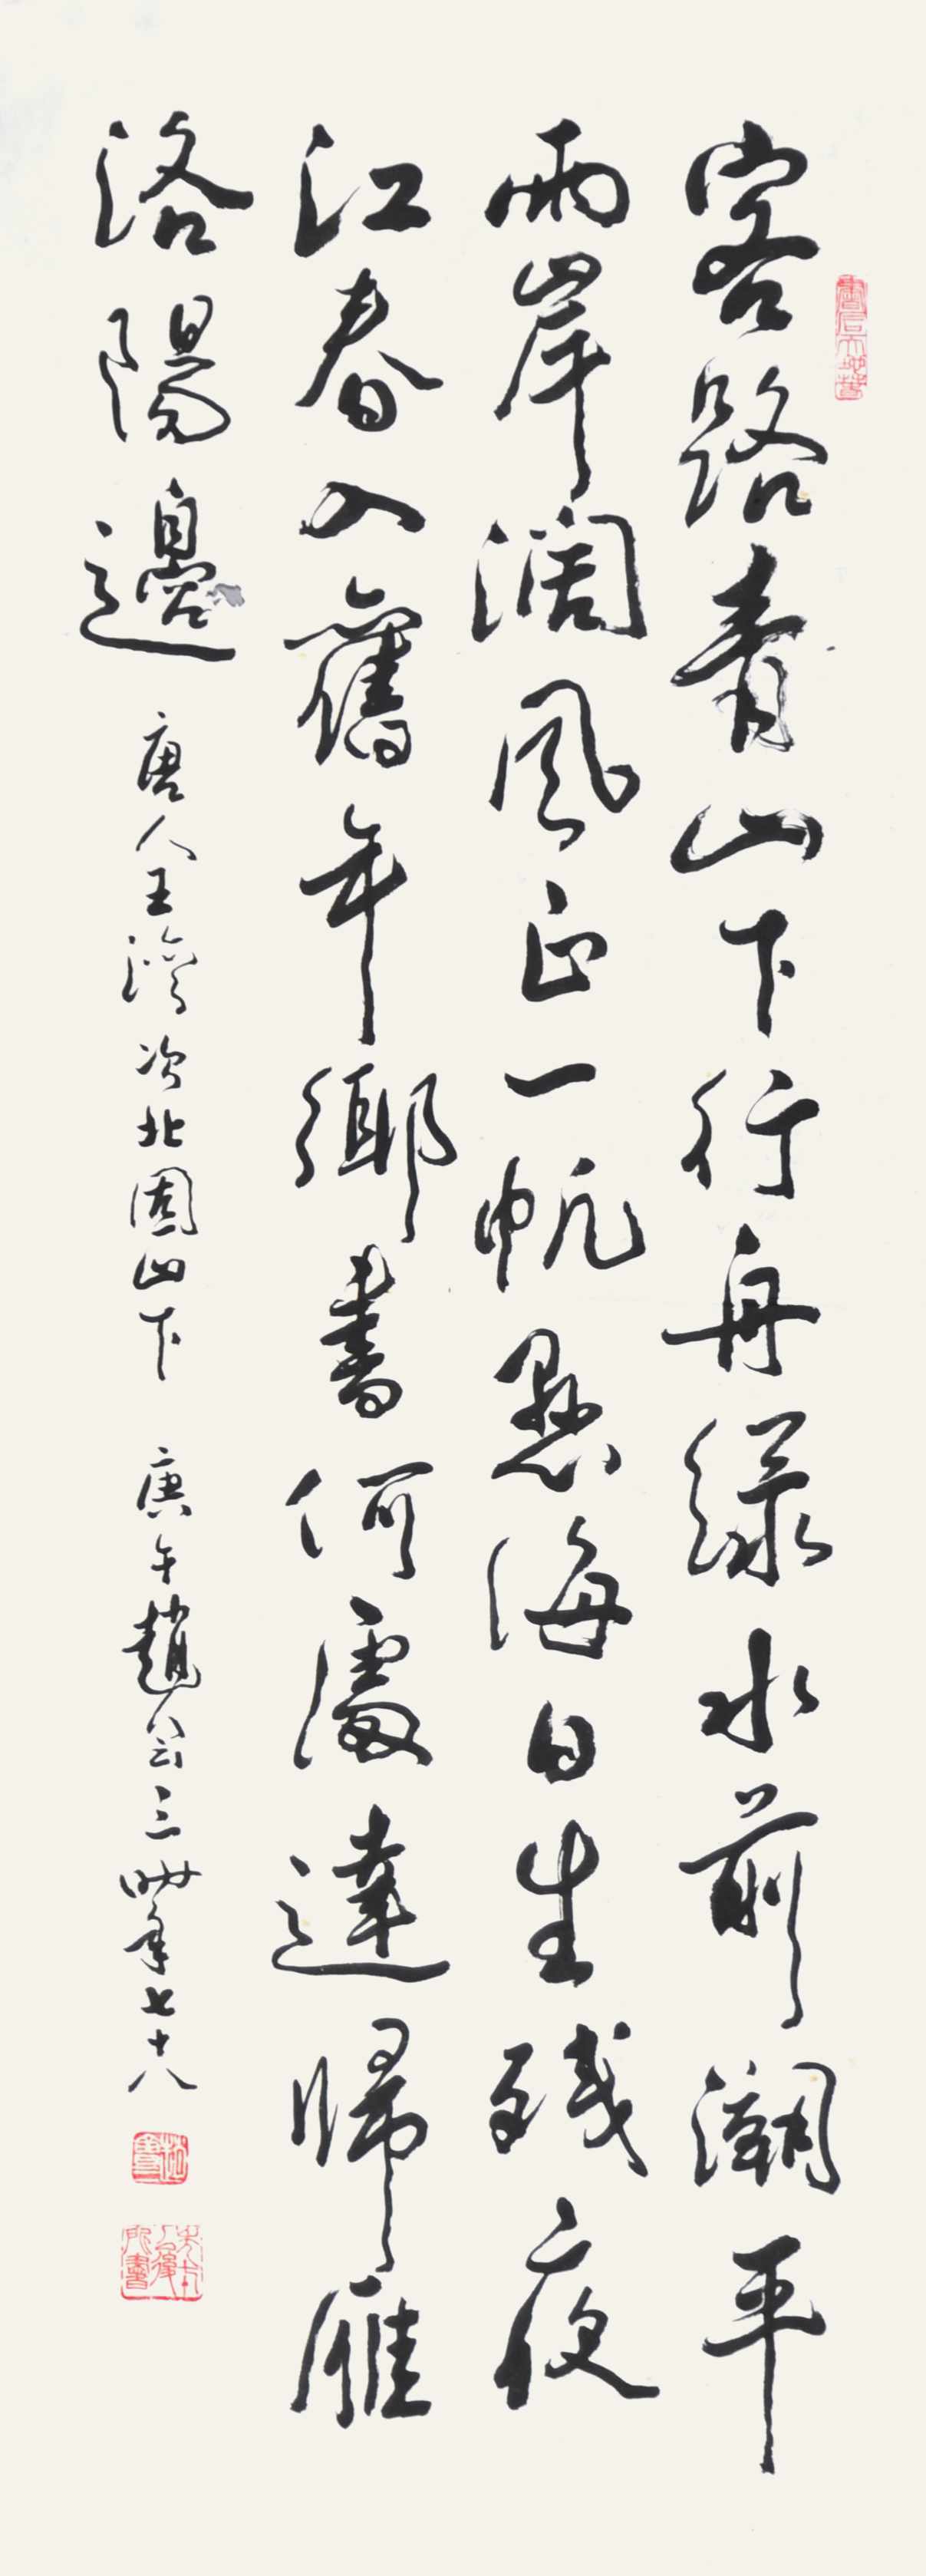 客路青山下行舟綠水前潮平
兩岸闊風正一帆懸海日生殘夜
江春入舊年鄉書何處達歸雁
洛陽邊
唐人王灣次北固山下
庚午趙公三時年七十八